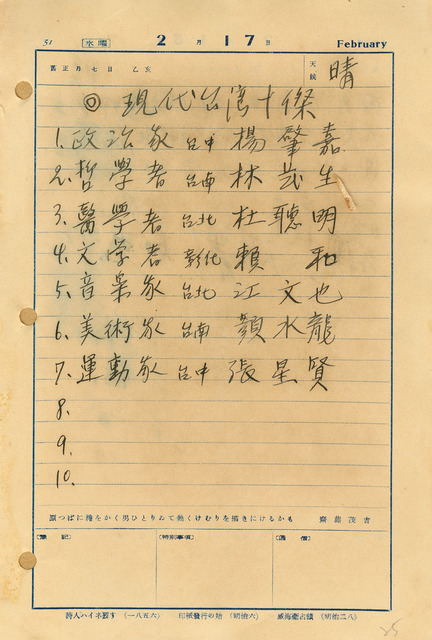 51 水曜 2月17日 February
舊正月七日 乙亥 天候 晴
◎ 現代台湾十傑
1. 政治家 台中 楊肇嘉
2. 哲學者 台南 林茂生
3. 醫學者 台北 杜聰明
4. 文学者 彰化 賴 和
5. 音楽家 台北 江文也
6. 美術家 台南 顏水龍
7. 運動家 台中 張星賢
8.
9.
10.
原つぱに繪をかく男ひとりゐて動くけむりを描きにけるかも 齋藤茂吉
(雜記) (特別事項) (通信)
詩人ハイネ歿す (一八五六) 印紙發行の始 (明治六) 威海衛占領 (明治二八)
25